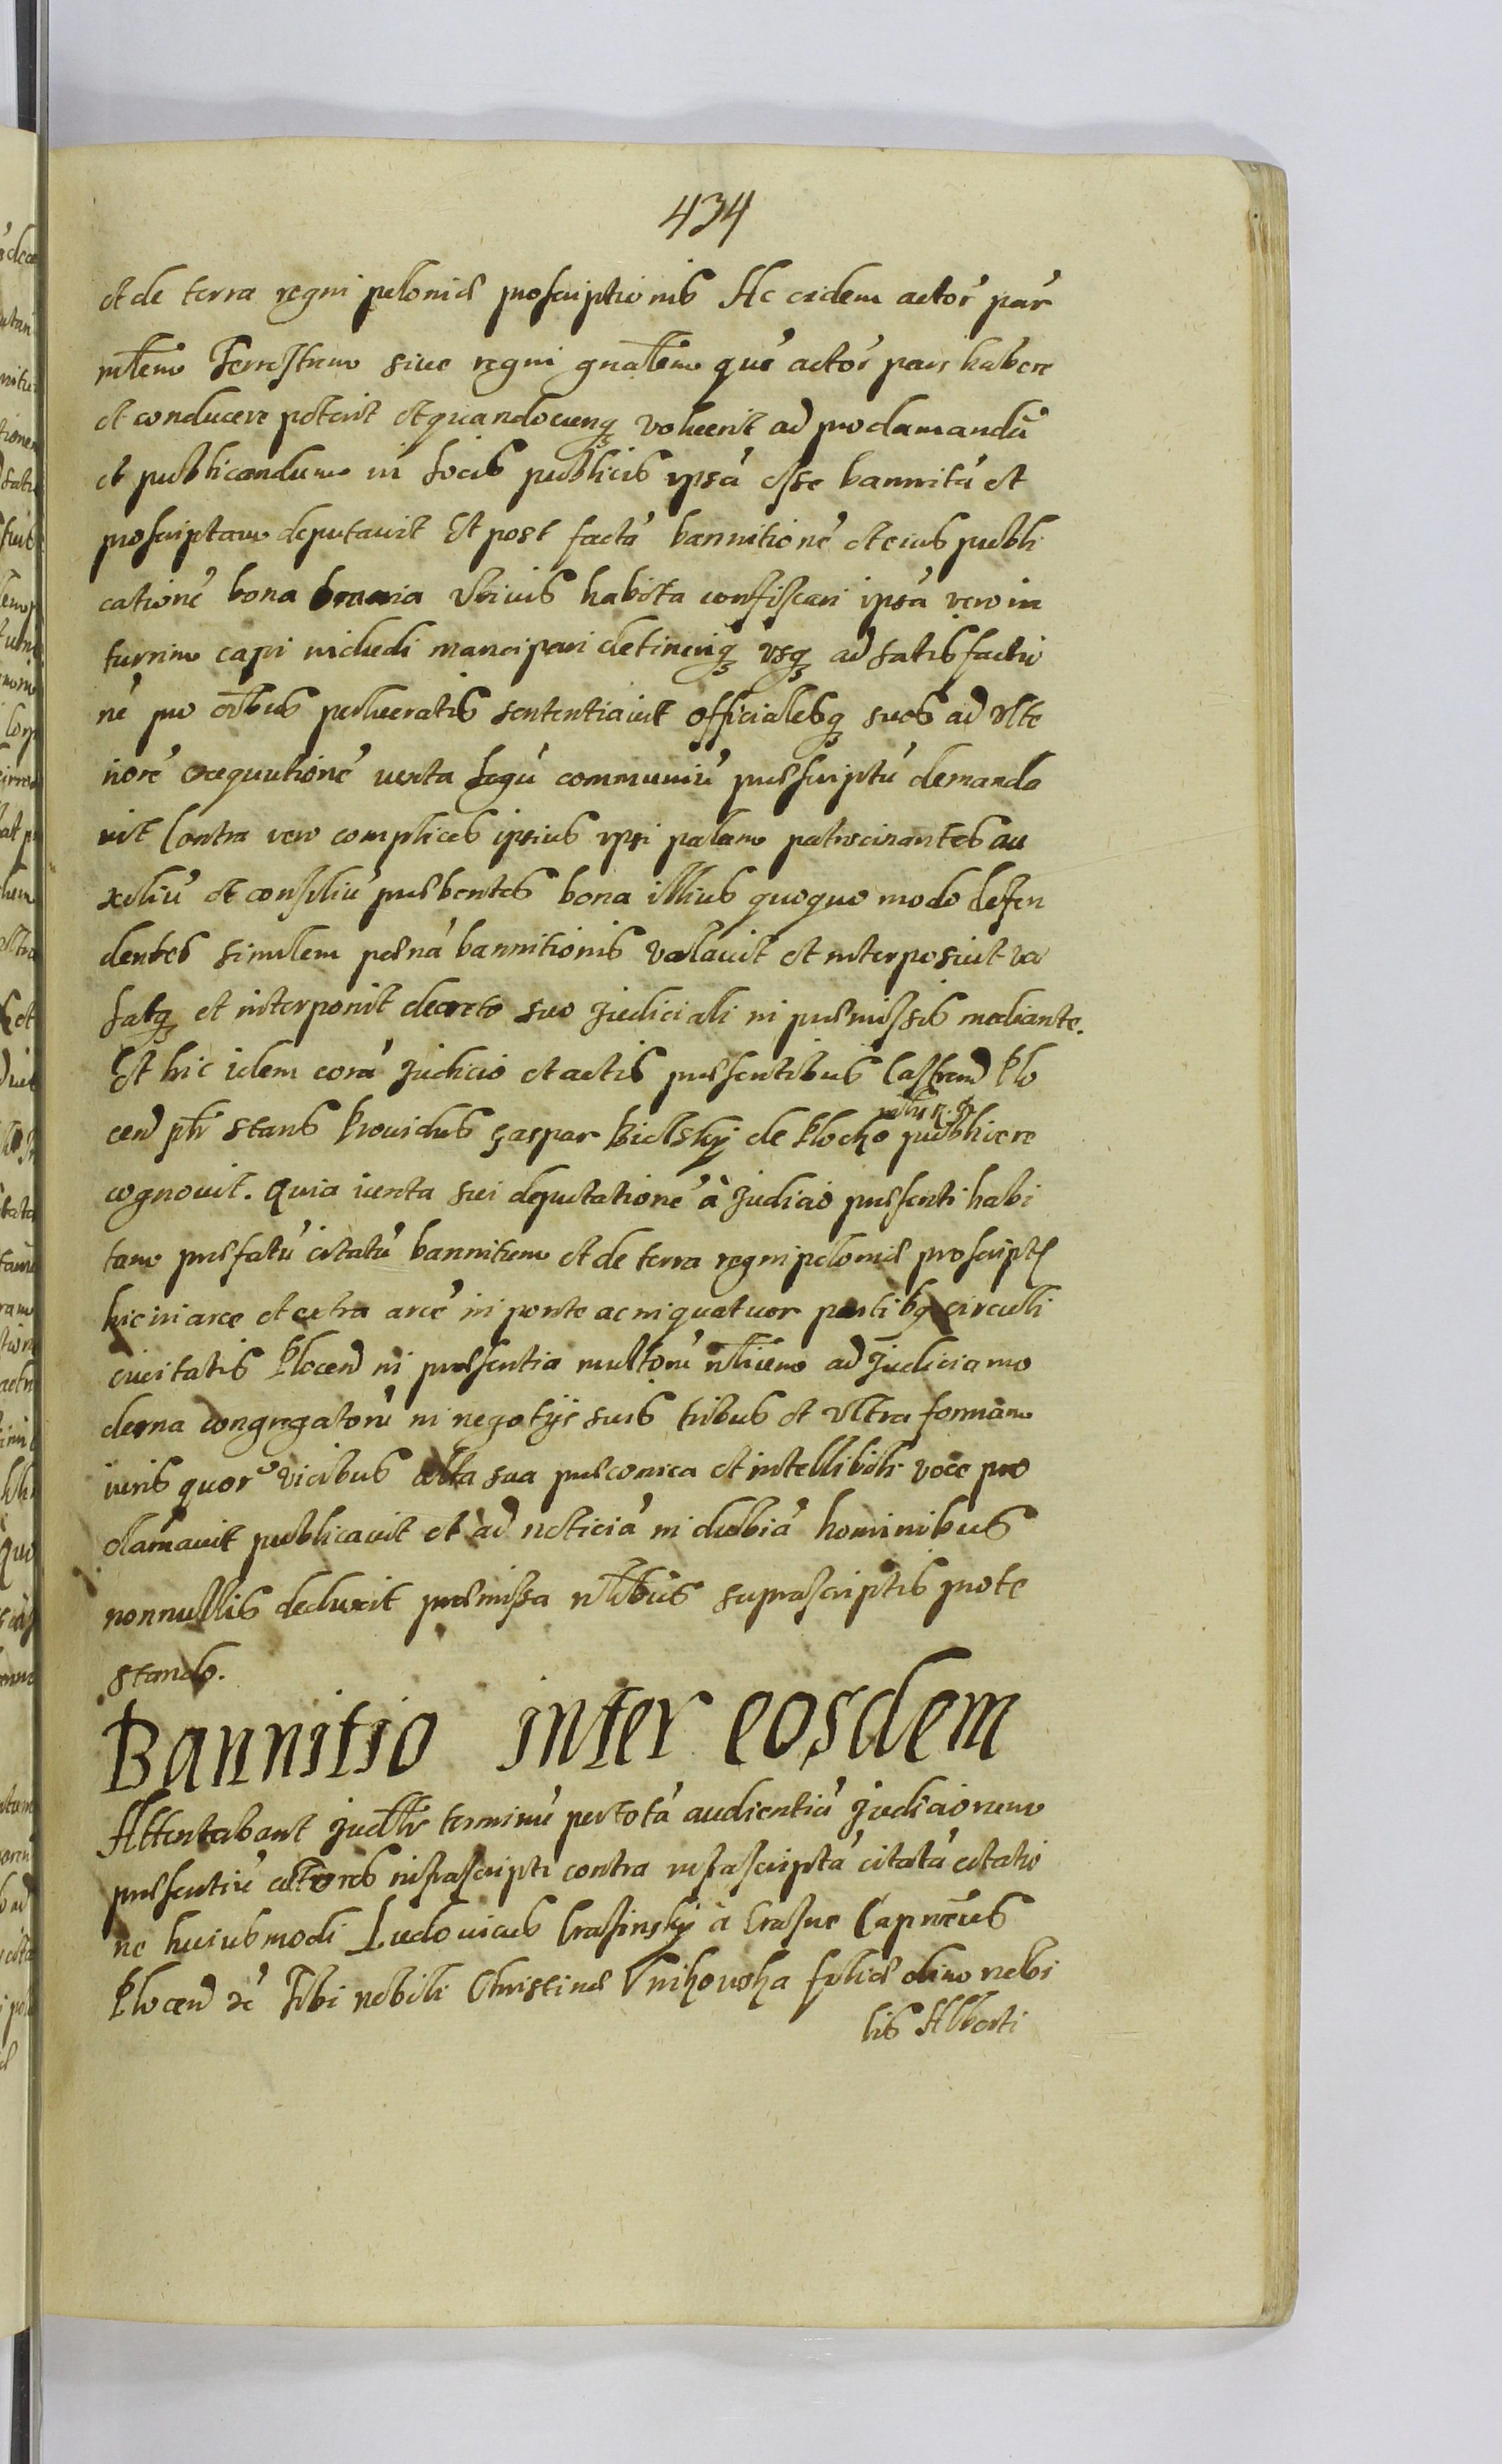 434
et de terra regni poloniæ proscriptionis Ac eidem actori par
mrlem Terrestrem sive regni gnalem quē actor pars habere
et conducere poterit et quandocunq voluerit ad proclamandū
et publicandum in locis publicis ipsā esse bannitā et
proscriptam deputavit Et post factā bannitionē et eius publi
cationē bona omnia vbivis habita confiscari ipsā vero in
turrim capi includi mancipari detineriq vsq ad satisfactio
nē pro oībus perlucratis sententiavit officialesq suos ad vlte
riorē exequutionē iuxta legū communiū præscriptū demanda
vit Contra vero complices ipsius ipsi palam patrocinantes au
xiliū et consiliū præbentes bona illius quoquo modo defen
dentes similem pœnā bannitionis valavit et interposuit va
latq et interponit decreto suo Judiciali in præmissis mediante.
Et hic idem corā Judicio et actis præsentibus Castren Plo
cen psr stans Providus Gaspar Bielsky de Plocko publice re
cognovit. Quia iuxta sui deputationē à Judicio præsenti habi
tam præfatū citatū bannitum et de terra regni poloniæ proscript
hic in arce et extra arcē in ponte ac in quatuor partibq circuli
civitatis Plocen in præsentia multorū nlium ad Judicia mo
derna congregatorū in negotijs suis tribus et vltra formam
iuris quor vicibus alta sua præconica et intelligibili voce pro
clamavit publicavit et ad noticiā indubiā hominibus
nonnullis deduxit præmissa nlibus suprascriptis prote
stando.
Bannitio inter eosdem
Attentabant Judlr terminū per totā audientiā Judiciorum
præsentiū actores infrascripti contra infrascriptā citatā citatio
ne huiusmodi Ludovicus Crasinsky à Crasne Capneus
Plocen Tibi nobili Christinæ filiæ olim nobi
lis Alberti